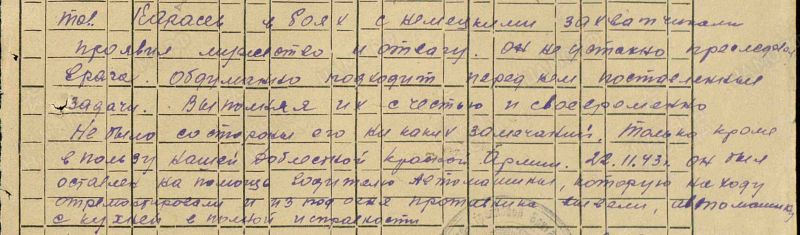 тов. Карасев в боях с немецкими захватчиками
проявил мужество и отвагу. Он неустанно преследовал
врага. Обдуманно подходит перед нем поставленные
задачи. Выполняя их с честью и своевременно
Не было со стороны его ни каких замечаний. Только кроме
в пользу нашей доблестной Красной Армии. 22.11.43г. он был
оставлен на помощь водителю Автомашины, которую на ходу
отремонтировали и из под огня противника вывели, автомашину
с кухней в полной исправности